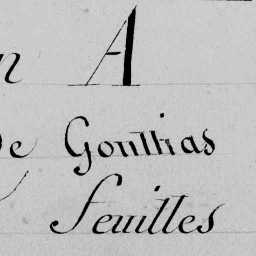 n A
De Gontras
feuilles